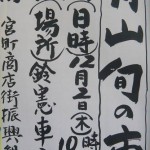 山旬の市
(日時)12月2日(木)10時
(場所)鈴憲車
宮町商店街振興